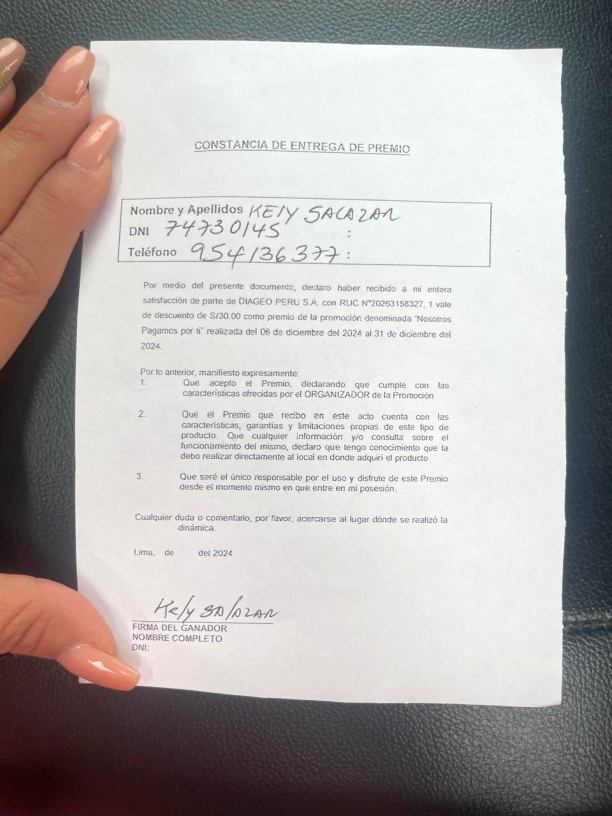 CONSTANCIA DE ENTREGA DE PREMIO
Nombre y Apellidos KEIY SALAZAR
DNI 74730145 :
Teléfono 954136377 :
Por medio del presente documento, declaro haber recibido a mi entera
satisfacción de parte de DIAGEO PERU S.A. con RUC N°20263158327, 1 vale
de descuento de S/30.00 como premio de la promoción denominada "Nosotros
Pagamos por ti" realizada del 06 de diciembre del 2024 al 31 de diciembre del
2024.
Por lo anterior, manifiesto expresamente:
1. Que acepto el Premio, declarando que cumple con las
características ofrecidas por el ORGANIZADOR de la Promoción
2. Que el Premio que recibo en este acto cuenta con las
características, garantías y limitaciones propias de este tipo de
producto. Que cualquier información y/o consulta sobre el
funcionamiento del mismo, declaro que tengo conocimiento que la
debo realizar directamente al local en donde adquirí el producto
3. Que seré el único responsable por el uso y disfrute de este Premio
desde el momento mismo en que entre en mi posesión.
Cualquier duda o comentario, por favor, acercarse al lugar dónde se realizó la
dinámica.
Lima, de del 2024
Kely SALAZAR
FIRMA DEL GANADOR
NOMBRE COMPLETO
DNI: